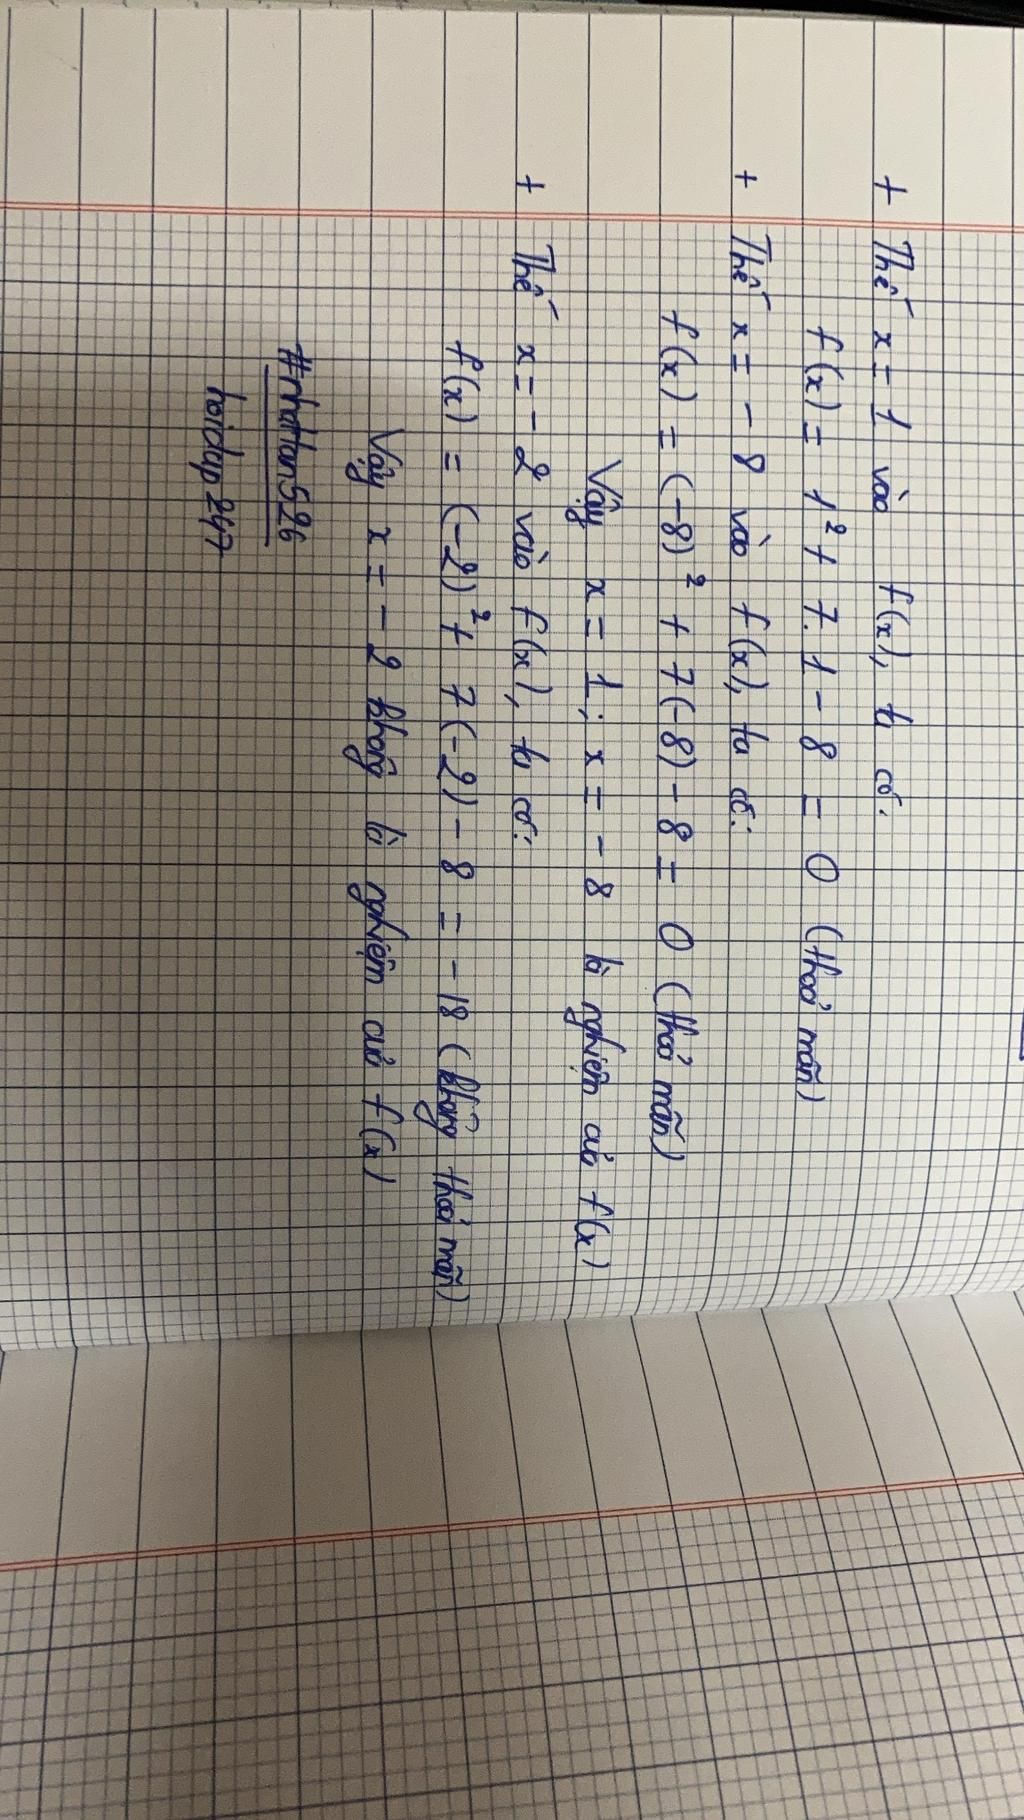 + Thế x = 1 vào f(x), ta có:
f(x) = 1² + 7.1 - 8 = 0 (thoả mãn)
+ Thế x = - 8 vào f(x), ta có:
f(x) = (-8)² + 7(-8) - 8 = 0 (thoả mãn)
Vậy x = 1; x = - 8 là nghiệm của f(x)
+ Thế x = - 2 vào f(x), ta có:
f(x) = (-2)² + 7(-2) - 8 = - 18 (không thoả mãn)
Vậy x = - 2 không là nghiệm của f(x)
hoidap247